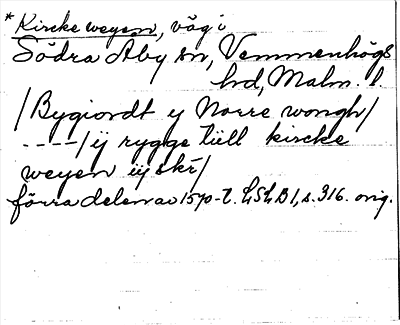 *Kircke weyen, väg i
Södra Åby sn, Vemmenhögs
hd, Malm. l.
/Bygiordt y Norre wongh/
----/ij rygge till kircke
weyen iij skr/
förra delen av 1570-t. LSLB1, s. 316. orig.